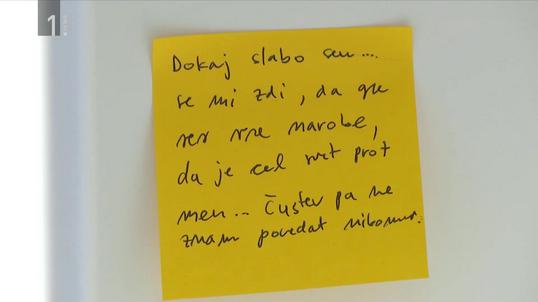 1
Dokaj slabo sem...
se mi zdi, da gre
res vse narobe,
da je cel svet prot
men... Čustev pa ne
znam povedat nikomur.